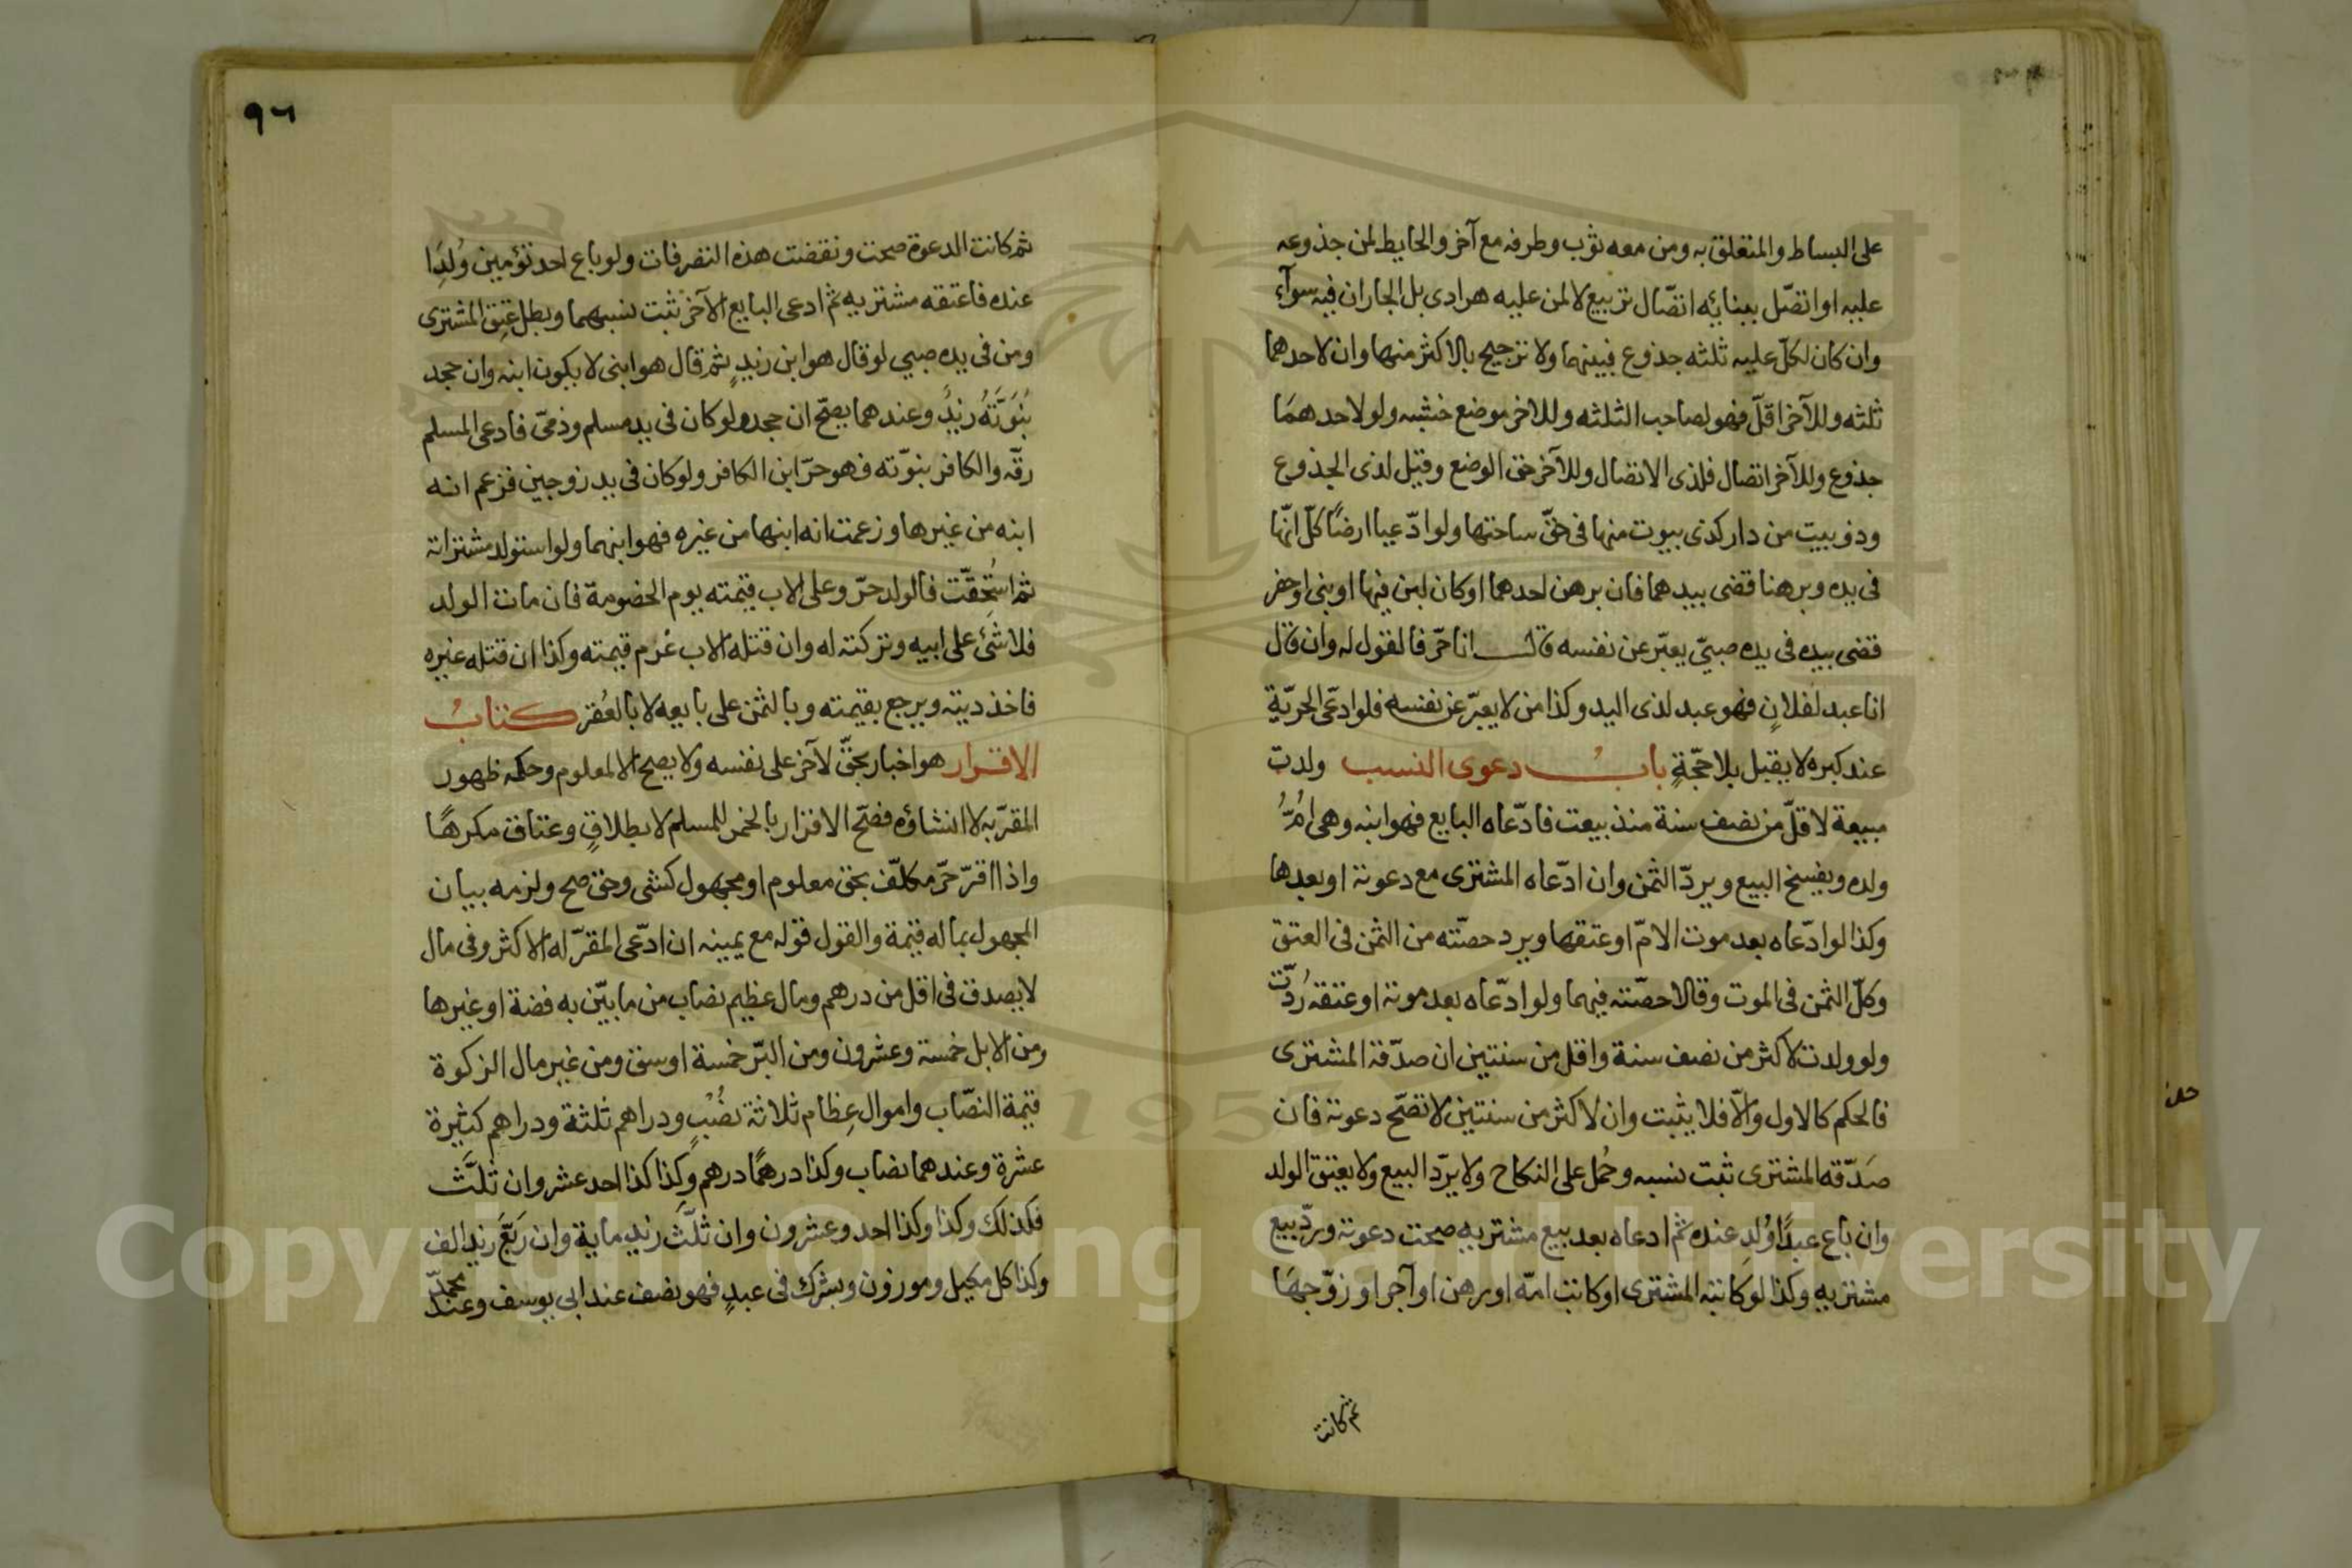 على البساط والمتعلق به ومن معه ثوب وطرفه مع آخر والحايط لمن جذوعه
عليه او اتصّل ببنائه اتصّال تربيع لا لمن عليه هرادى بل الجاران فيه سوآء
وان كان لكلّ عليه ثلثه جذوع فبينهما ولا ترجيح بالاكثر منها وان لاحدهما
ثلثه وللآخر اقلّ فهو لصاحب الثلثه وللاخر موضع خشبه ولو لاحدهمَا
جذوع وللآخر اتصال فلذى الاتصال وللآخر حق الوضع وقيل لذى الجذوع
وذو بيت من دار كذى بيوت منها فى حقّ ساحتها ولو ادّعيا ارضًا كلّ انّها
فى يده وبرهنا قضى بيدهما فان برهن احدهما او كان لبن فيها او بنى او حفر
قضى بيده فى يده صبيّ يعبّر عن نفسه قال انا حرّ فالقول له وان قال
انا عبد لفلانٍ فهو عبد لذى اليد وكذا من لا يعبّر عن نفسه فلو ادعّى الحريّة
عند كبره لا يقبل بلا حجّةٍ بابُ دعوى النسب ولدت
مبيعة لاقلّ من نصف سنة منذ بيعت فادّعاه البايع فهو ابنه وهى امُّ
ولده ويفسخ البيع ويردّ الثمن وان ادّعاه المشترى مع دعوته او بعدها
وكذا لو ادّعاه بعد موت الامّ او عتقها ويرد حصّته من الثمن فى العتق
وكلّ الثمن فى الموت وقالا حصّته فيهما ولو ادّعاه بعد موته او عتقه رُدّت
ولو ولدت لاكثر من نصف سنة واقل من سنتين ان صدّقه المشترى
فالحكم كالاول والّا فلا يثبت وان لاكثر من سنتين لا تصّح دعوته فان
صَدّقه المشترى ثبت نسبه وحُمل على النكاح ولا يردّ البيع ولا يعتق الولد
وان باع عبدًا وُلِد عنده ثم ادعاه بعد بيع مشتريه صحت دعوته وردّ بيع
مشتريه وكذا لو كاتبه المشترى او كاتب امّه او رهن او آجر او زوّجهَا
ثم كانت
٩٦
ثم كانت الدعوة صحت ونقضت هذه التصرفات ولو باع احد تؤمين وُلِدَا
عنده فاعتقه مشتريه ثم ادعى البايع الآخر ثبت نسبهما وبطل عتق المشترى
ومن فى يده صبي لو قال هو ابن زيدٍ ثم قال هو ابنى لا يكون ابنه وان جحد
بُنُوَّتَهُ زيدٌ وعندهما يصحّ ان جحده ولو كان فى يد مسلم وذمىّ فادعى المسلم
رقّه والكافر بنوّته فهو حرّ ابن الكافر ولو كان فى يد زوجين فزعم انه
ابنه من غيرها وزعمت انه ابنها من غيره فهو ابنهما ولو استولد مشتراته
ثم استُحِقّت فالولد حرّ وعلى الاب قيمته يوم الخصومة فان مات الولد
فلا شئ على ابيه وتركته له وان قتله الاب غرم قيمته وكذا ان قتله غيره
فاخذ ديته ويرجع بقيمته وبالثمن على بايعه لا بالعُقر كتابُ
الاقرار هو اخبار بحقّ لآخر على نفسه ولا يصح الا لمعلوم وحكمه ظهور
المقرّ به لا انشاؤه فصّح الاقرار بالخمر للمسلم لا بطلاقٍ وعتاق مكرهًا
واذا اقرّ حرّ مكلّف بحق معلوم او مجهول كشى وحق صح ولزمه بيان
المجهول بماله قيمة والقول قوله مع يمينه ان ادّعى المقرّ له الاكثر وفى مال
لا يصدق فى اقل من درهم ومال عظيم نصاب من ما بيّن به فضة او غيرها
ومن الابل خمسة وعشرون ومن البرّ خمسة اوسق ومن غير مال الزكوة
قيمة النصّاب واموال عِظام ثلاثة نصُبٍ ودراهم ثلثة ودراهم كثيرة
عشرة وعندهما نصاب وكذا درهمًا درهم وكذا كذا احد عشر وان ثلّث
فكذلك وكذا وكذا احد وعشرون وان ثلّثَ زيد ماية وان رَبّعَ زيد الف
وكذا كل مكيل وموزون وبشرك فى عبدٍ فهو نصف عند ابي يوسف وعند محمّد
Copyright © King Saud University